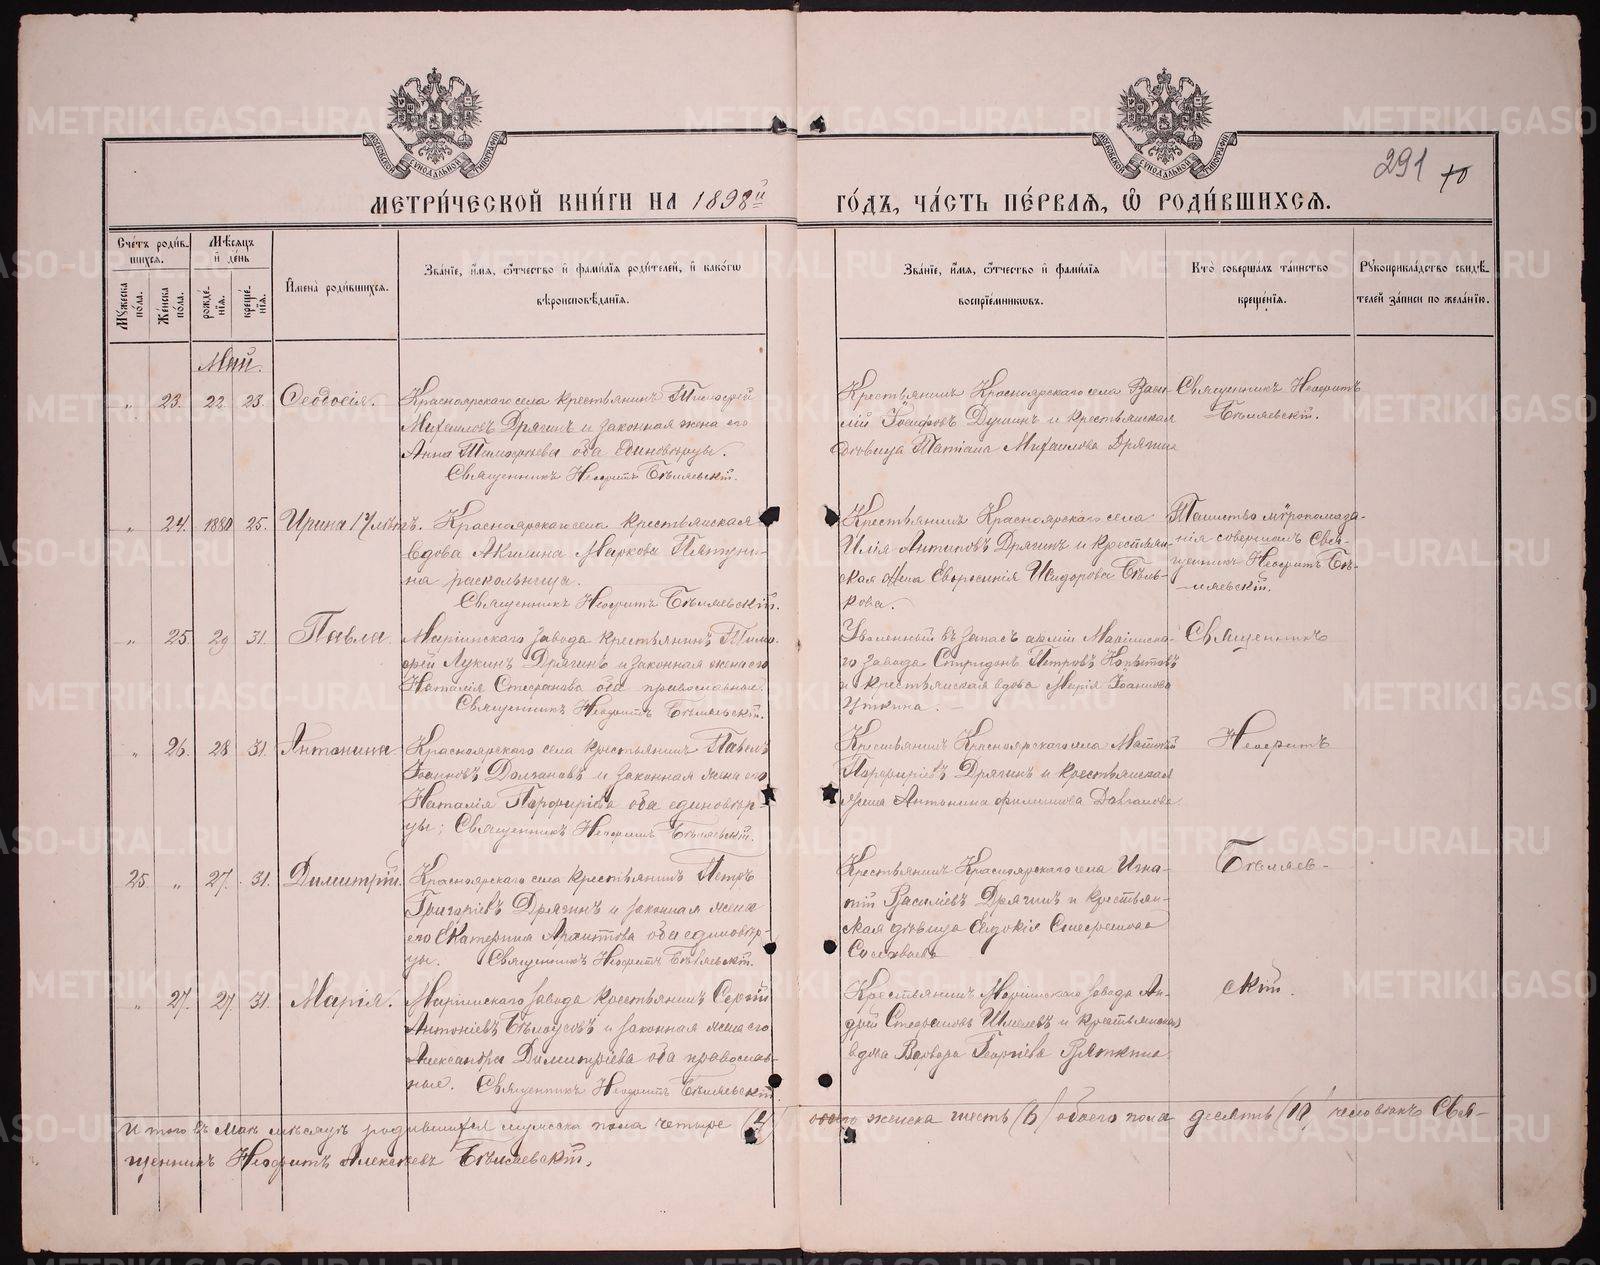 МОСКОВСКОЙ СѴНОДАЛЬНОЙ ТИПОГРАФІИ
МОСКОВСКОЙ СѴНОДАЛЬНОЙ ТИПОГРАФІИ
291 10
МЕТРИ́ЧЕСКОЙ КНИ́ГИ НА 1898й ГО́ДЪ, ЧА́СТЬ ПЕ́РВАѦ, Ѡ҆ РОДИ́ВШИХСѦ.
Сче́тъ роди́в-
шихсѧ.
Мꙋ́жеска по́ла.
Же́нска по́ла.
Мѣ́сѧцъ и҆ де́нь
рожде́-нїѧ.
креще́-нїѧ.
И҆мена̀ роди́вшихсѧ.
Зва́нїе, и҆́мѧ, ѻ҆́тчество и҆ фами́лїѧ роди́телей, и҆ како́гѡ
вѣроисповѣ́данїѧ.
Зва́нїе, и҆́мѧ, ѻ҆́тчество и҆ фами́лїѧ
воспрїе́мникѡвъ.
Кто̀ соверша́лъ та́инство
креще́нїѧ.
Рꙋкоприкла́дство свидѣ́-
телей за́писи по жела́нїю.
Май.
„ 23. 22 23. Ѳеодосія. Красноярскаго села крестьянинъ Тимоѳей
Михаиловъ Дрягинъ и законная жена его
Анна Тимоѳеева оба единовѣрцы.
Священникъ Неофитъ Бѣляевскій.
Крестьянинъ Красноярскаго села Васи-
лій Іосифовъ и крестьянская
дѣвица Татіана Михаилова Дрягина
Священникъ Неофитъ
Бѣляевскій.
„ 24. 1880 25. Ирина 17 лѣтъ. Красноярскаго села крестьянская
вдова Акилина Маркова
на раскольница.
Священникъ Неофитъ Бѣляевскій.
Крестьянинъ Красноярскаго села
Илія Антиповъ Дрягинъ и крестьян-
ская Евфросинія Исидорова Бѣль-
кова.
Таинство мѵропомаза-
нія совершалъ Свя-
щенникъ Неофитъ Бѣ-
ляевскій.
„ 25. 29 31. Павла Маріинскаго завода крестьянинъ Тимо-
ѳей Лукинъ Дрягинъ и законная жена его
Наталія Стефанова оба православные.
Священникъ Неофитъ Бѣляевскій.
Уволенный въ запасъ арміи Маріинска-
го завода Спиридонъ Петровъ Копытовъ
и крестьянская вдова Марія Іоаннова
Уткина.
Священникъ
„ 26. 28 31 Антонина Красноярскаго села крестьянинъ Павелъ
Іоанновъ Долгановъ и законная жена его
Наталія Порфиріева оба единовѣр-
цы; Священникъ Неофитъ Бѣляевскій.
Крестьянинъ Красноярскаго села Матѳей
Порфиріевъ Дрягинъ и крестьянская
Антонина Филиппова Долганова
Неофитъ
25. „ 27. 31. Димитрій. Красноярскаго села крестьянинъ Петръ
Григоріевъ Дрягинъ и законная жена
его Екатерина оба единовѣр-
цы. Священникъ Неофитъ Бѣляевскій.
Крестьянинъ Красноярскаго села Игна-
тій Василіевъ Дрягинъ и крестьян-
ская дѣвица Евдокія Стефанова
Бѣляев-
„ 27. 27. 31. Марія. Маріинскаго завода крестьянинъ Сергій
Антоніевъ Бѣлоусовъ и законная жена его
Александра Димитріева оба православ-
ные. Священникъ Неофитъ Бѣляевскій
Крестьянинъ Маріинскаго завода Ан-
дрей Стефановъ Шмелевъ и крестьянская
вдова Варвара Георгіева Вяткина.
скій.
Итого въ маѣ мѣсяцѣ родившихся мужска пола четыре (4) женска шесть (6) обоего пола десять (10) человѣкъ Свя-
щенникъ Неофитъ Алексѣевъ Бѣляевскій.
METRIKI.GASO-URAL.RU